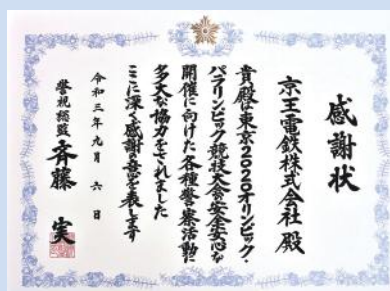 感謝状
京王電鉄株式会社 殿
貴殿は東京2020オリンピック・
パラリンピック競技大会の安全安心な
開催に向けた各種警察活動に
多大な協力をされました
ここに深く感謝の意を表します
令和三年九月 六 日
警視総監 斉藤 実